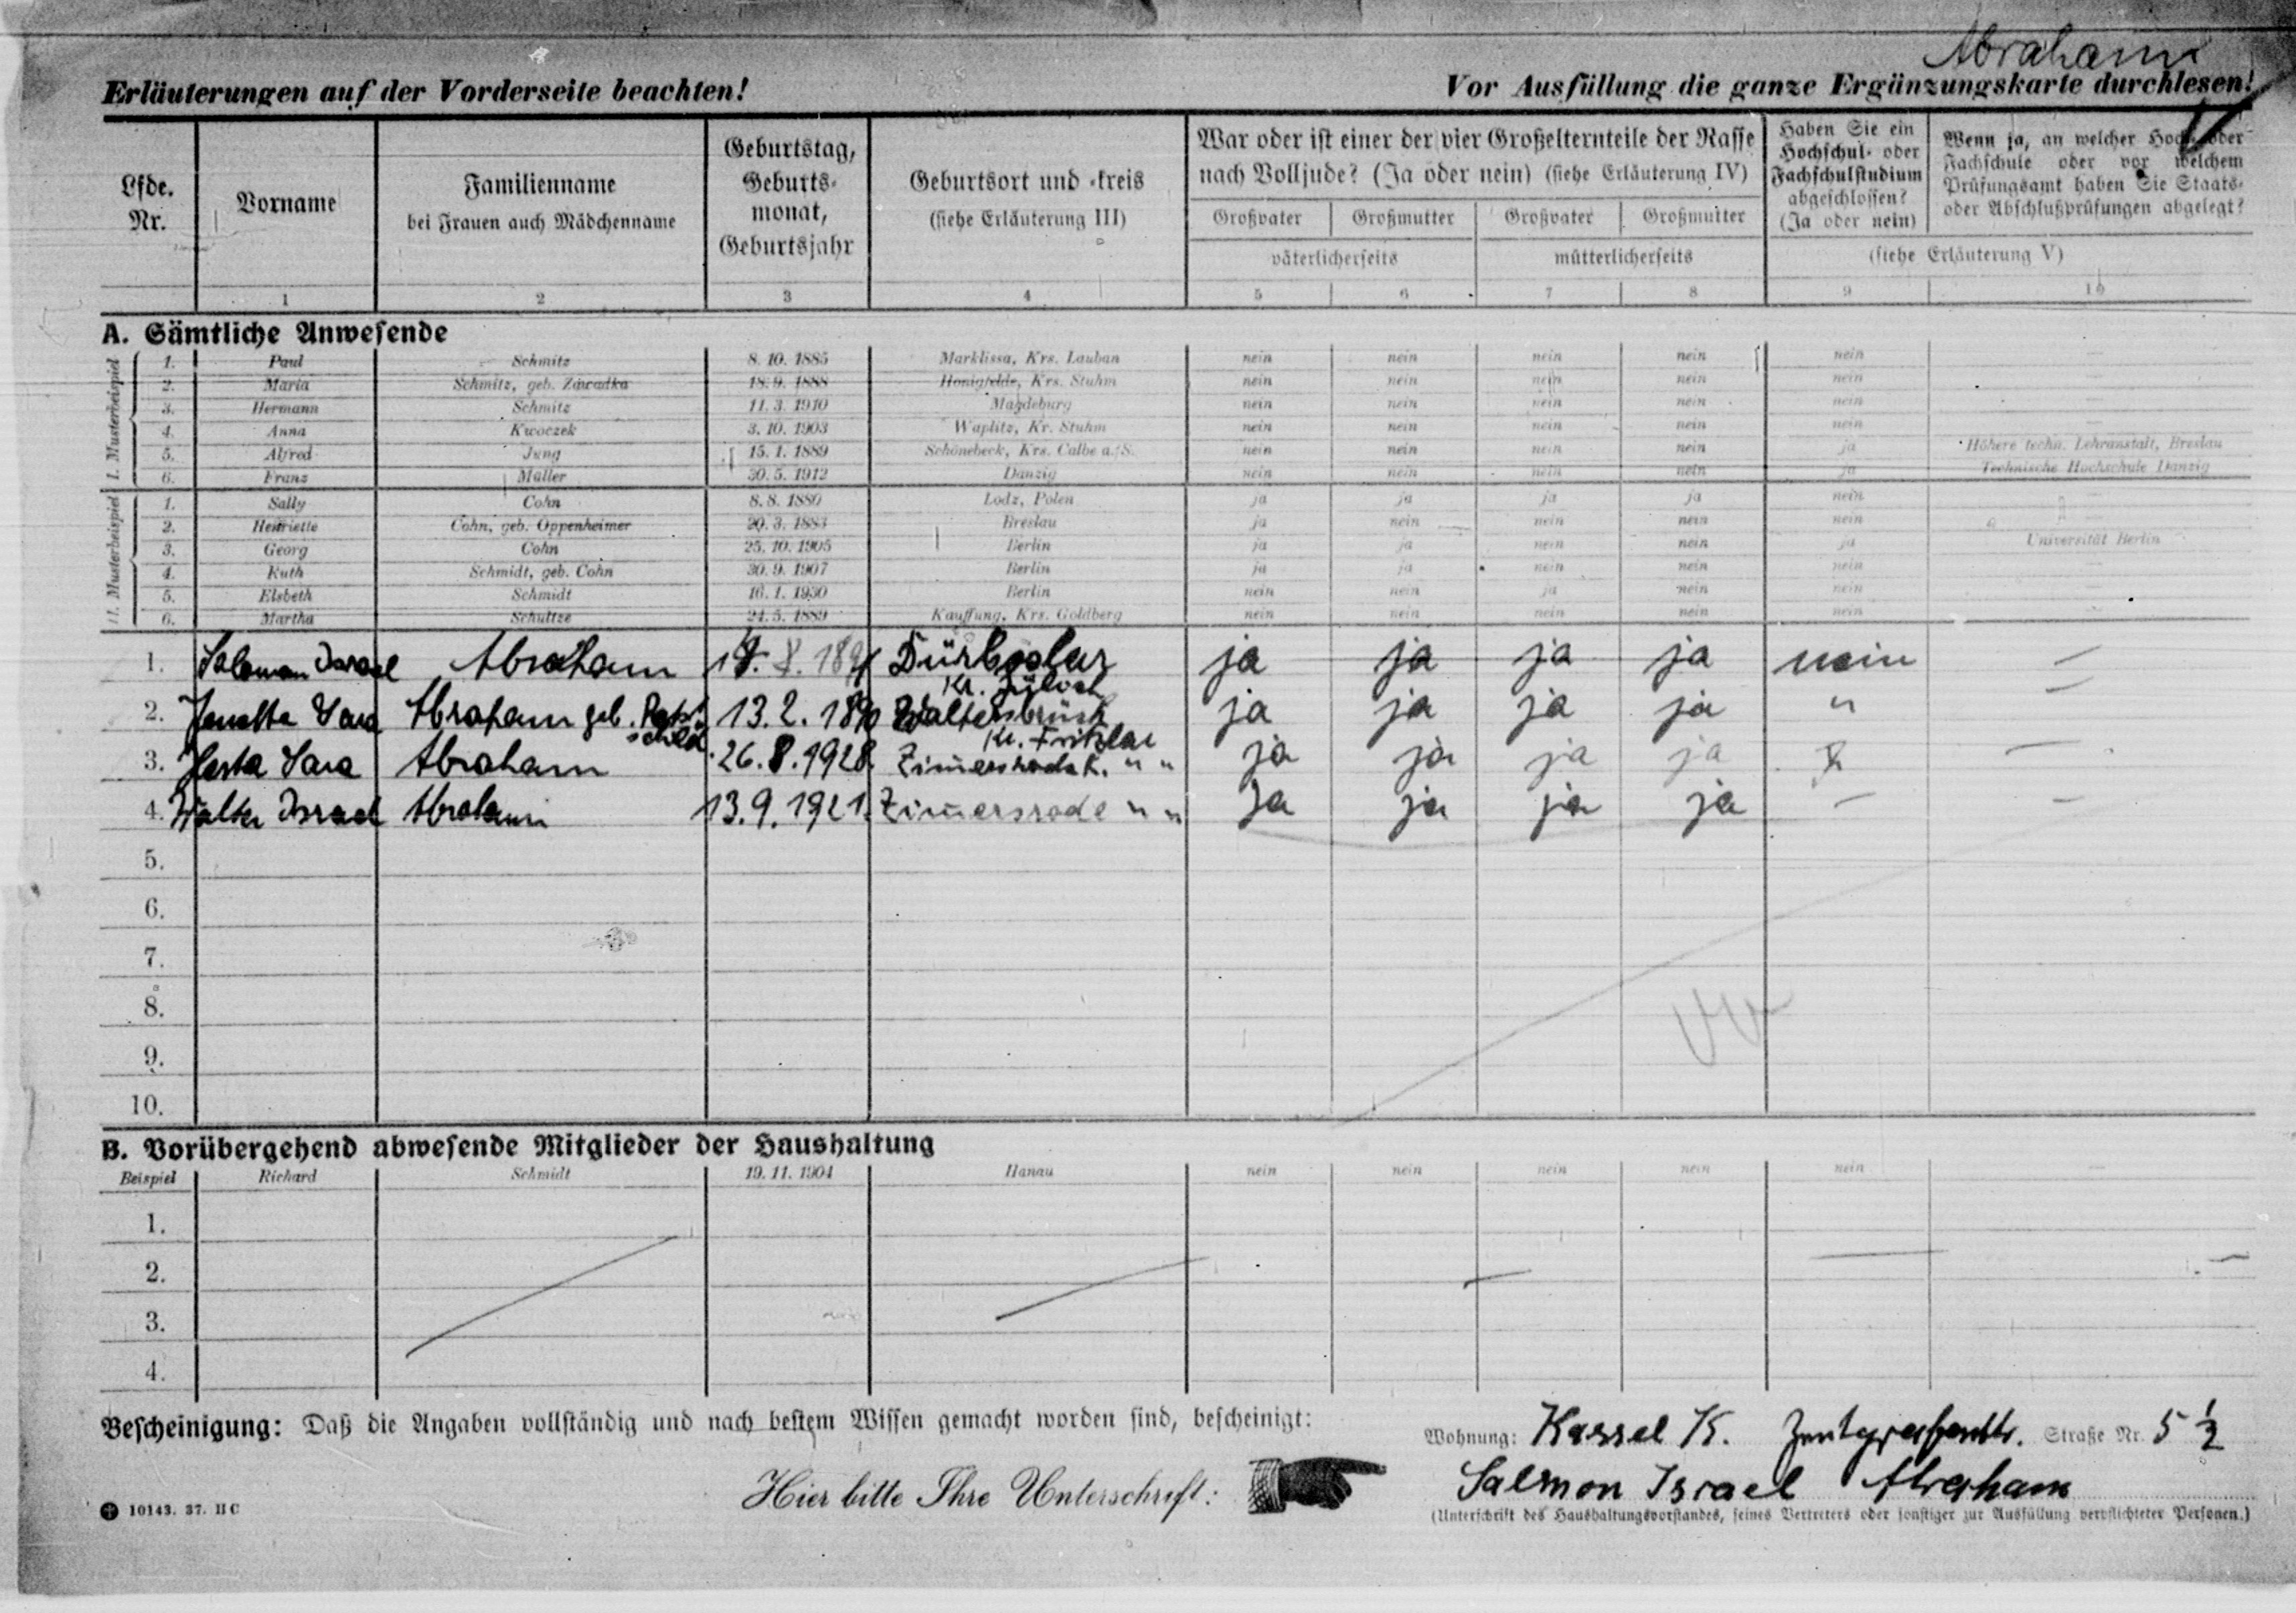 Abraham
Erläuterungen auf der Vorderseite beachten!
Vor Ausfüllung die ganze Ergänzungskarte durchlesen!
Lfde. Nr.
Vorname
Familienname
bei Frauen auch Mädchenname
Geburtstag,
Geburts-
monat,
Geburtsjahr
Geburtsort und -kreis
(siehe Erläuterung III)
War oder ist einer der vier Großelternteile der Rasse
nach Volljude? (Ja oder nein) (siehe Erläuterung IV)
Großvater Großmutter Großvater Großmutter
väterlicherseits mütterlicherseits
Haben Sie ein
Hochschul- oder
Fachschulstudium
abgeschlossen?
(Ja oder nein)
Wenn ja, an welcher Hoch- oder
Fachschule oder vor welchem
Prüfungsamt haben Sie Staats-
oder Abschlußprüfungen abgelegt?
(siehe Erläuterung V)
1 2 3 4 5 6 7 8 9 10
A. Sämtliche Anwesende
I. Musterbeispiel
1. Paul Schmitz 8. 10. 1885 Marklissa, Krs. Lauban nein nein nein nein nein —
2. Maria Schmitz, geb. Zawadka 18. 9. 1888 Honigfelde, Krs. Stuhm nein nein nein nein nein —
3. Hermann Schmitz 11. 3. 1910 Magdeburg nein nein nein nein nein —
4. Anna Kwoczek 3. 10. 1903 Waplitz, Kr. Stuhm nein nein nein nein nein —
5. Alfred Jung 15. 1. 1889 Schönebeck, Krs. Calbe a./S. nein nein nein nein ja Höhere techn. Lehranstalt, Breslau
6. Franz Müller 30. 5. 1912 Danzig nein nein nein nein ja Technische Hochschule Danzig
II. Musterbeispiel
1. Sally Cohn 8. 8. 1880 Lodz, Polen ja ja ja ja nein —
2. Henriette Cohn, geb. Oppenheimer 20. 3. 1883 Breslau ja nein nein nein nein —
3. Georg Cohn 25. 10. 1905 Berlin ja ja nein nein ja Universität Berlin
4. Ruth Schmidt, geb. Cohn 30. 9. 1907 Berlin ja ja nein nein nein —
5. Elsbeth Schmidt 16. 1. 1930 Berlin nein nein ja nein nein —
6. Martha Schultze 24. 5. 1889 Kauffung, Krs. Goldberg nein nein nein nein nein —
1. Salomon Israel Abraham Dürboslar ja ja ja ja nein —
Kr. Jülich
2. Sara Abraham geb. 13.2.1890 Waltersbrück ja ja ja ja " —
schild Kr. Fritzlar
3. Herta Sara Abraham 26.8.1928 " " ja ja ja ja —
4. Walter Israel Abraham 13.9.1921 Zimersrode " " ja ja ja ja — —
5.
6.
7.
8.
9.
10.
B. Vorübergehend abwesende Mitglieder der Haushaltung
Beispiel Richard Schmidt 19. 11. 1904 Hanau nein nein nein nein nein —
1.
2.
3.
4.
Bescheinigung: Daß die Angaben vollständig und nach bestem Wissen gemacht worden sind, bescheinigt:
Wohnung: Kassel K. Zentgrafenstr. Straße Nr. 5 ½
Hier bitte Ihre Unterschrift:
Salmon Israel Abraham
(Unterschrift des Haushaltungsvorstandes, seines Vertreters oder sonstiger zur Ausfüllung verpflichteter Personen.)
10143. 37. II C